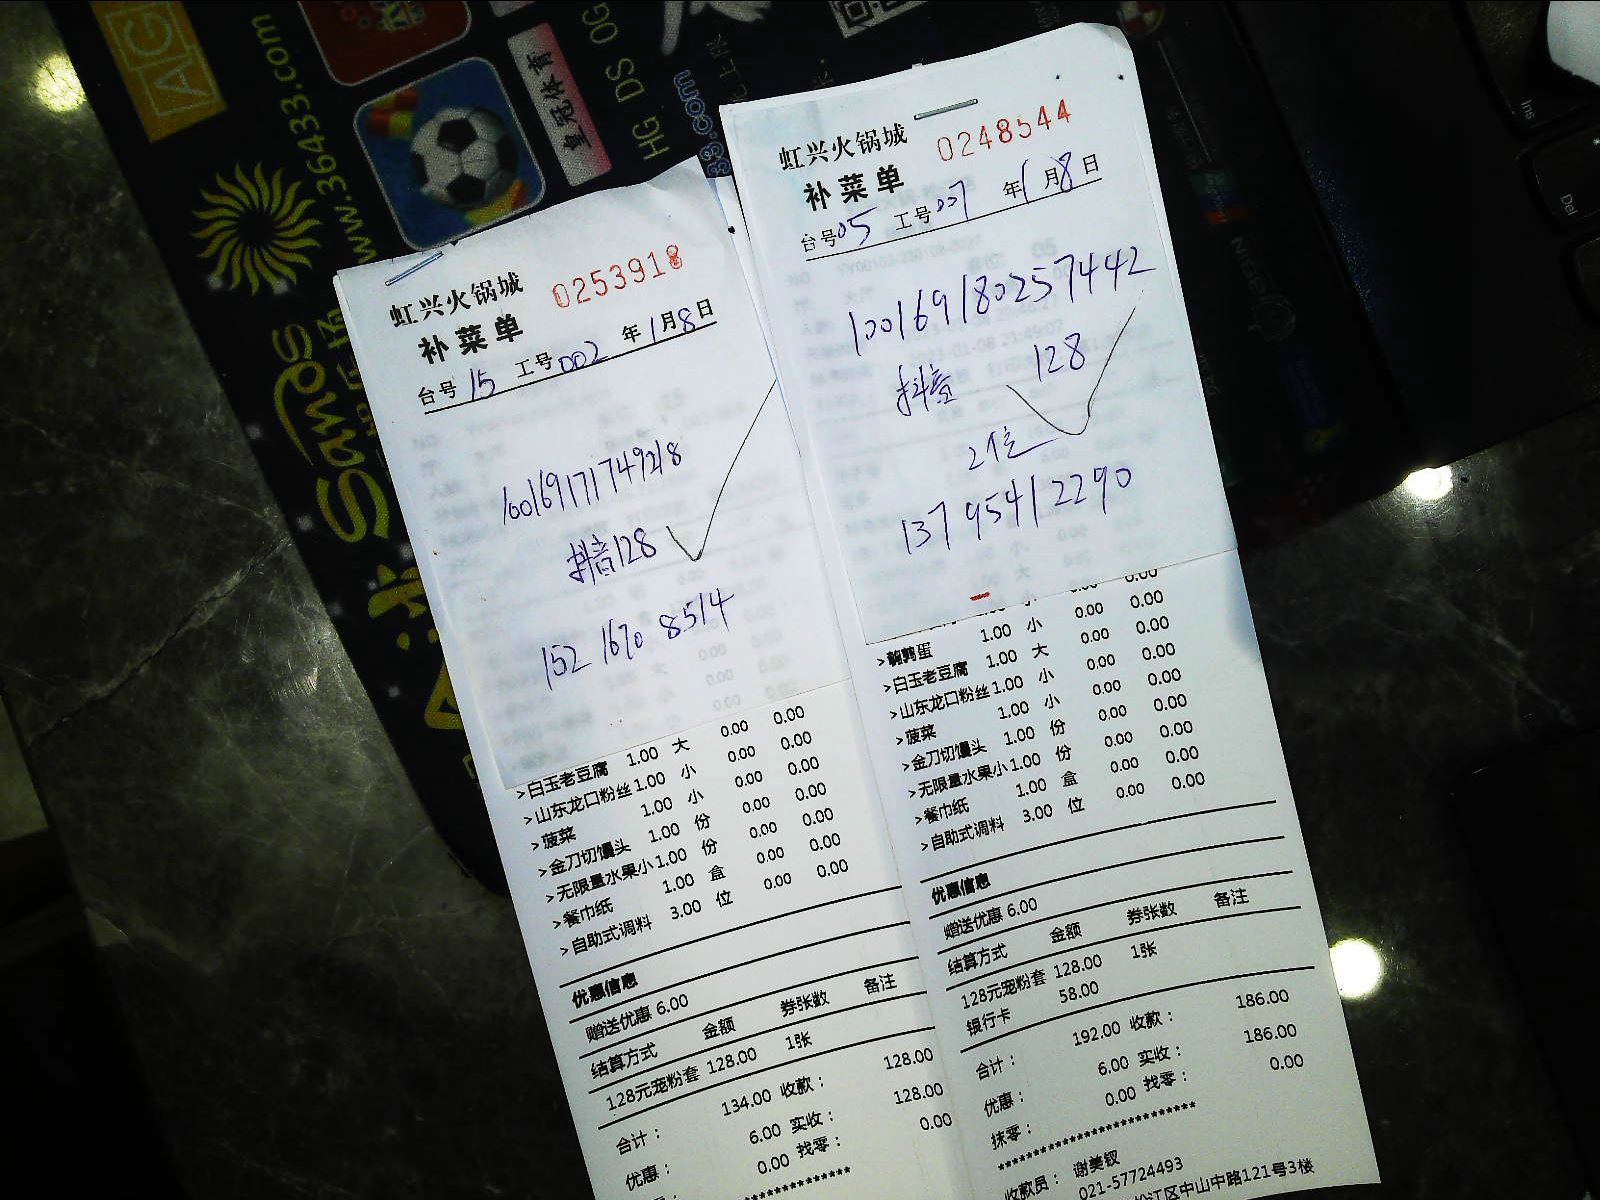 AG
www.36433.com
皇冠体育
HG DS OG
Samos
Ins
Del
虹兴火锅城
0253918
补菜单
台号 15 工号 002 年 1月 8日
100169171749218
抖音128
152 1670 8514
>白玉老豆腐 1.00 大 0.00 0.00
>山东龙口粉丝 1.00 小 0.00 0.00
>菠菜 1.00 小 0.00 0.00
>金刀切馒头 1.00 份 0.00 0.00
>无限量水果小 1.00 份 0.00 0.00
>餐巾纸 1.00 盒 0.00 0.00
>自助式调料 3.00 位 0.00 0.00
优惠信息
赠送优惠 6.00
结算方式 金额 券张数 备注
128元宠粉套 128.00 1张
合计： 134.00 收款： 128.00
优惠： 6.00 实收： 128.00
0.00 找零： 0.00
虹兴火锅城
0248544
补菜单
台号 05 工号 007 年 1月 8日
100169180257442
抖音 128
2位
13795412290
>鹌鹑蛋 1.00 小 0.00 0.00
>白玉老豆腐 1.00 大 0.00 0.00
>山东龙口粉丝 1.00 小 0.00 0.00
>菠菜 1.00 小 0.00 0.00
>金刀切馒头 1.00 份 0.00 0.00
>无限量水果小 1.00 份 0.00 0.00
>餐巾纸 1.00 盒 0.00 0.00
>自助式调料 3.00 位 0.00 0.00
优惠信息
赠送优惠 6.00
结算方式 金额 券张数 备注
128元宠粉套 128.00 1张
银行卡 58.00
合计： 192.00 收款： 186.00
优惠： 6.00 实收： 186.00
抹零： 0.00 找零： 0.00
*************************
收款员： 谢美钗
021-57724493
松江区中山中路121号3楼